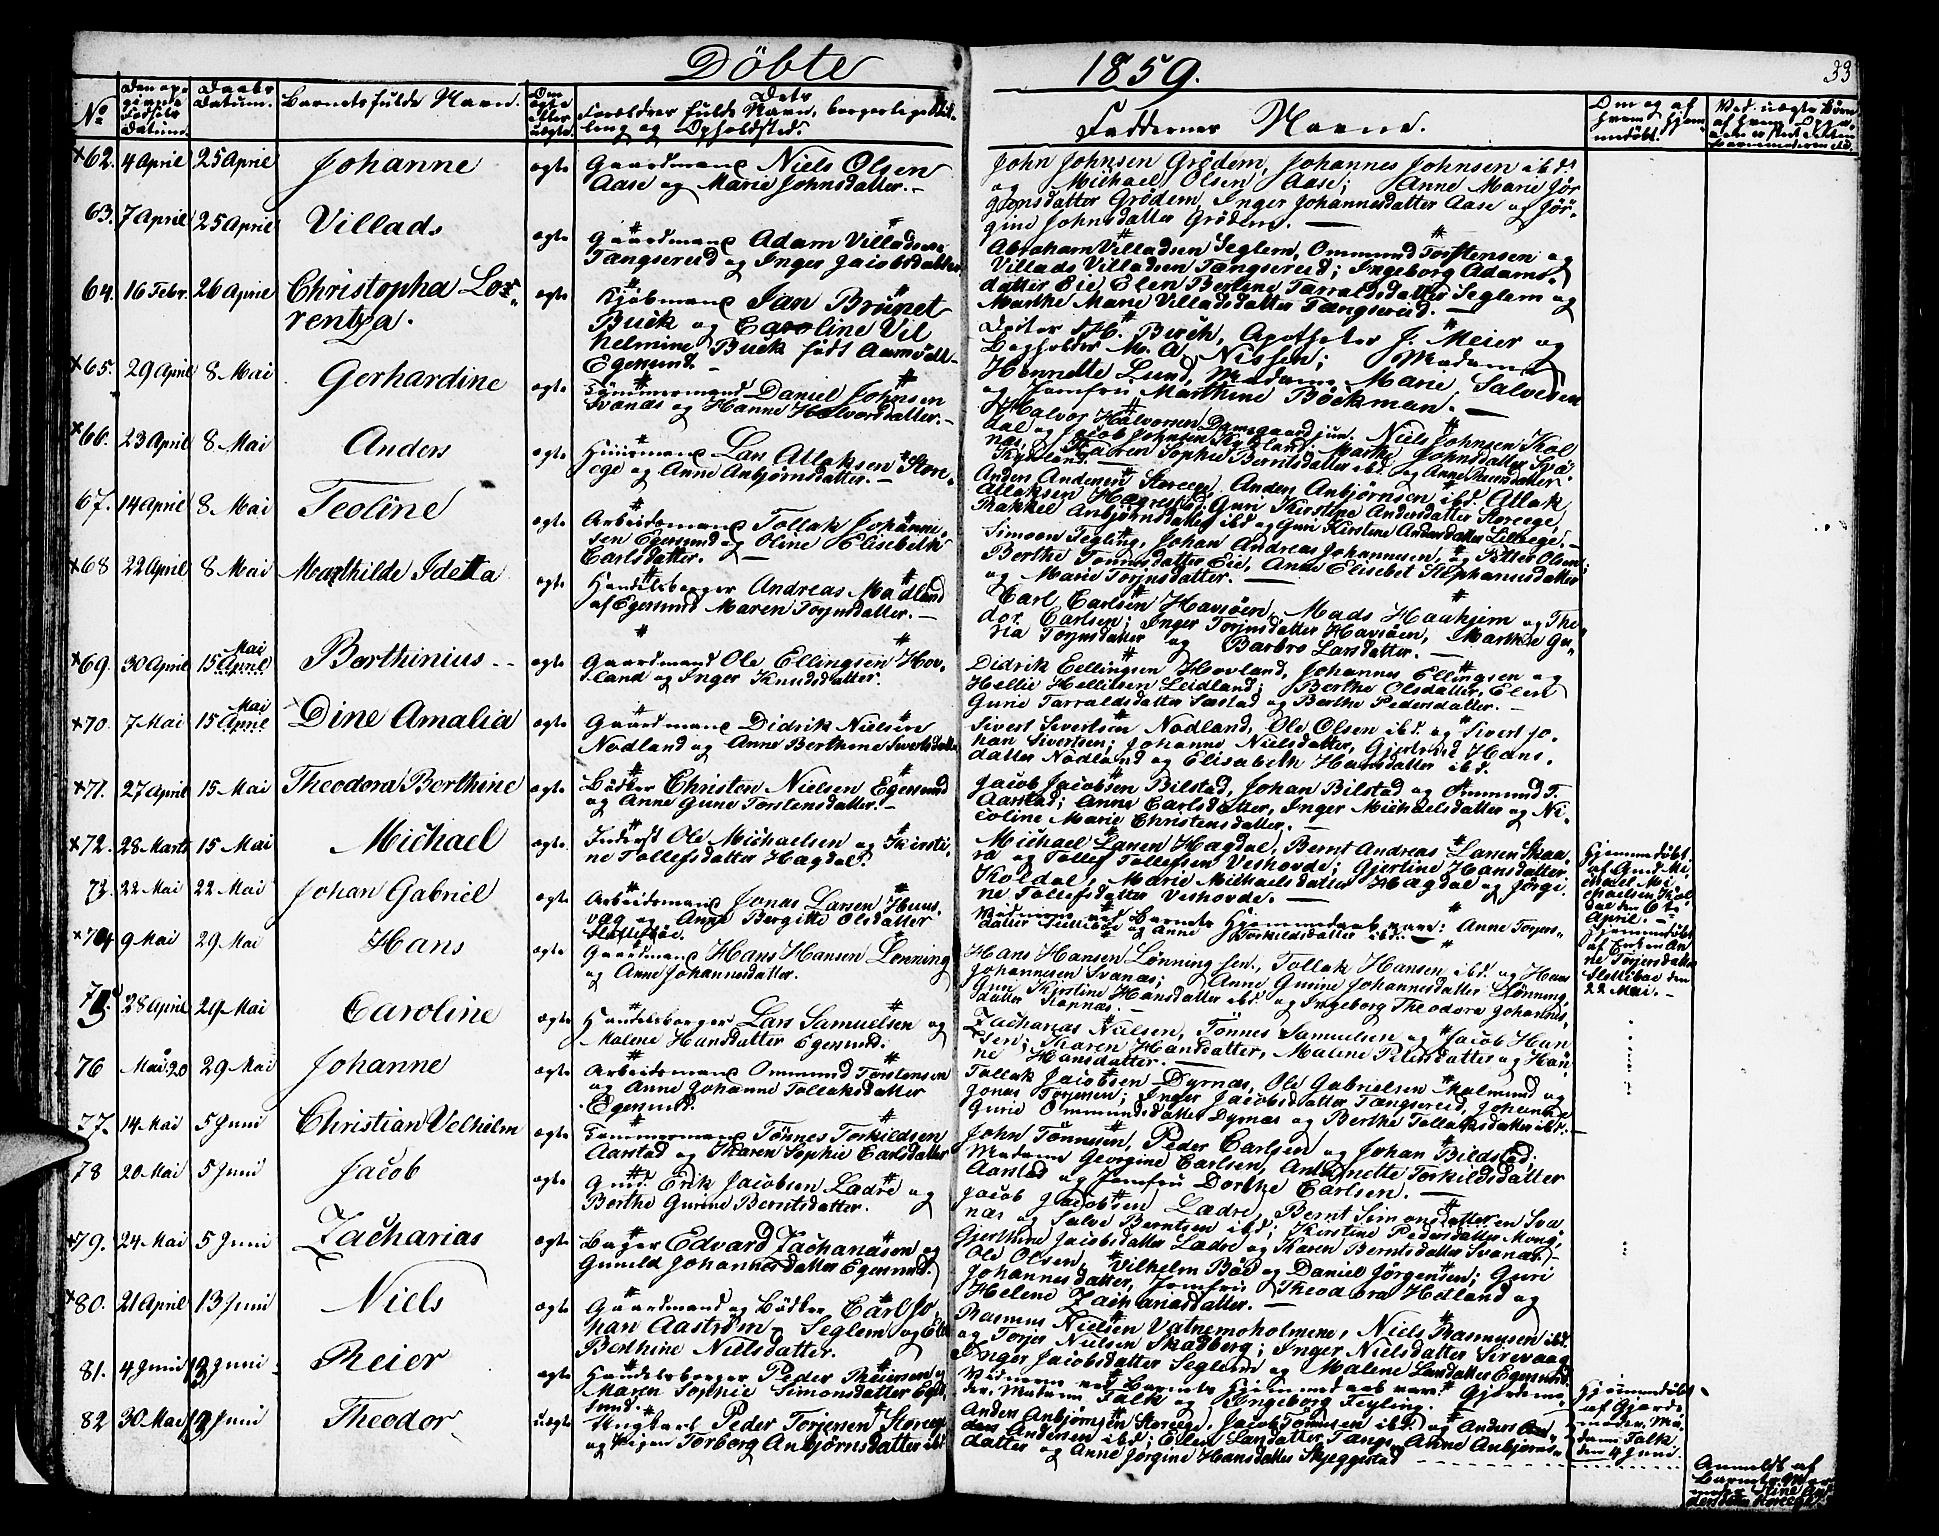 Döbte 1859. 33
№
Barnets fulde Navn.
Faddernes Navne.
62. 4 April 25 April Johanne ægte Gaardmand Niels Olsen
Aase og Marie Johnsdatter.
John Johnsen Grödem, Johannes Johnsen ibd.
og Michael Olsen Aase; Anne Marie Jör
gensdatter Grödem, Inger Johannesdatter Aase og Jör-
gine Johnsdatter Grödem.
63. 7 April 25 April Villads ægte Gaardmand Adam Villadsen
Tængsereid og Inger Jacobsdatter
Abraham Villadsen Seglem, Ommund Torstensen og
Villads Villadsen Tængsereid; Ingeborg Adams-
datter Eie, Elen Bertine Tarraldsdatter Seglem og
Marthe Marie Villadsdatter Tængsereid.
64. 16 Febr. 26 April Christopha Lor-
rentza.
ægte Kjöbmand Jan Brünet
Buck og Caroline Vil
helmine Buck födt Aamödt
Egersund.
Birch, Apotheker J. Meier og
Bogholder M. A. Nissen; Madame
Henrette Lund, Madame Marie Salvesen
og Jomfru Marthine Böckman.
65. 29 April 8 Mai Gerhardine ægte Tömmermand Daniel Johnsen
Svanæs og Hanne Halvorsdatter.
Halvor Halvorsen Damsgaard jun, Niels Johnsen Kol
dal og Jacob Johnsen
Karen Sophie Berntsdatter ibd. og
66. 23 April 8 Mai Anders ægte Huusmand Lars Atlaksen Store-
ege og Anne Anbjörnsdatter.
Anders Andersen Storeege, Anders Anbjörnsen ibd. Atlak
Atlaksen Hægrestad, Guri Kirstine Andersdatter Storeege,
Rakkel Anbjörnsdatter ibd. og Guri Kirstine Andersdatter Lilleege.
67. 14 April 8 Mai Teoline ægte Arbeidsmand Tollak Johanne-
sen Egersund og Oline Elisebeth
Carlsdatter.
Simoen Tegling, Johan Andreas Johannesen, og Petter Olsen;
Berthe Tönnesdatter Eie, Anne Elisebet Stephansdatter
og Marie Torjusdatter.
68 22 April 8 Mai Mathilde Idetta ægte Handelsborger Andreas Madland
af Egersund Maren Torjusdatter.
Carl Carlsen Havsöen, Mads Haahjem og The-
dor Carlsen; Inger Torjusdatter Havsöen, Marthe Gu-
ria Torjusdatter og Barbro Larsdatter.
69. 30 April Mai 15 April Berthinius ægte Gaardmand Ole Ellingsen Hov-
land og Inger Knudsdatter.
Didrik Eellingsen Hovland, Johannes Ellingsen og
Hellie Hellitsen Leidland; Berthe Olsdatter, Elen
Gurie Tarraldsdatter Sæstad og Berthe Pedersdatter.
70. 7 Mai Mai 15 April Dine Amalia ægte Gaardmand Didrik Nielsen
Nodland og Anne Berthine Sivertsdatter
Sivert Sivertsen Nodland, Ole Olsen ibd. og Sivert Jo-
han Sivertsen; Johanne Nielsdatter, Gjertrud Hans-
datter Nodland og Elisabeth Hansdatter ibd.
71. 27 April 15 Mai Theodora Berthine ægte Bödker Christen Nielsen Egersund
og Anne Gurie Torstensdatter.
Jacob Jacobsen Bilstad, Johan Bilstad og Ommund T.
Aarstad; Anne Carlsdatter, Inger Michaelsdatter og Ni-
coline Marie Christensdatter.
72. 28 Marts 15 Mai Michael ægte Inderst Ole Michaelsen og Kirsti-
ne Tollefsdatter Hægdal.
Michael Larsen Hægdal, Bernt Andreas Larsen Skaa-
ra og Tollef Tollefsen Veshovde; Gjertine Hansdatter
Koldal, Marie Michaelsdatter Hægdal og Jörgi-
ne Tollefsdatter Veshovde.
Hjemmedöbt
af Gmd Mi-
chael Mi-
chaelsen Kol
dal den 6te
April.
73. 22 Mai 22 Mai Johan Gabriel ægte Arbeidsmand Jonas Larsen Huus-
væg og Anne Bergitte Olsdatter
Sletteböe.
Vidnerne ved Barnets Hjemmedaab vare: Anne Torjers-
datter Sletteböe og Anne Torkildsdatter ibd.
Hjemmedöbt
af Enken An
ne Torjersdatter
Slettebøe den
22 Mai.
74 9 Mai 29 Mai Hans ægte Gaardmand Hans Hansen Lönning
og Anne Johannesdatter.
Hans Hansen Lönning sen., Tollak Hansen ibd. og Hans
Johannesen Svanæs; Anne Gurine Johannesdatter Lönning,
Guri Kirstine Hansdatter ibd. og Ingeborg Theodora Johannes-
datter Rapnæs.
75. 28 April 29 Mai Caroline ægte Handelsborger Lars Samuelsen og
Malene Hansdatter Egersund.
Zacharias Nielsen, Tönnes Samuelsen og Jacob Han
sen; Karen Hansdatter, Malene Petersdatter og Han-
ne Hansdatter.
76 Mai 20 29 Mai Johanne ægte Arbeidsmand Ommund Torstensen
og Anne Johanne Tollaksdatter
Egersund.
Tollak Jacobsen Dyrnæs, Ole Gabrielsen Malmund og
Jonas Torjesen; Inger Jacobsdatter Tængsereid, Johanne
Gurie Ommundsdatter Dyrnæs og Berthe Tollaksdatter ibd.
77. 14 Mai 5 Juni Christian Velhelm ægte Tömmermand Tönnes Torkildsen
Aarstad og Karen Sophie Carlsdatter
John Tönnesen, Peder Carlsen og Johan Bildstad;
Madame Georgine Carlsen, Antonette Torkildsdatter
Aarstad og Jomfru Dorthe Carlsen.
78 20 Mai 5 Juni Jacob ægte Gmd. Erik Jacobsen Ladre og
Berthe Gurine Berntsdatter.
Jacob Jacobsen Ladre, Bernt Simonsen Sva
næs og Salve Berntsen ibd; Kirstine Pedersdatter Mong,
Gjerthine Jacobsdatter Ladre og Karen Berntsdatter Svanæs.
79. 24 Mai 5 Juni Zacharias ægte Bager Edvard Zachariasen og
Gunild Johannesdatter Egersund.
Ole Olsen, Vilhelm Böe og Daniel Jörgensen; Guri
Johannesdatter, Jomfru Theodora Hetland og
Helene Zachariasdatter.
80. 21 April 13 Juni Niels ægte Gaardmand og Bödker Carl Jo-
han Aaström Seglem og Elen
Berthine Nielsdatter.
Rasmus Nielsen Vatnemoholmene, Niels Rasmusen ibd.
og Torjer Nielsen Skadberg; Inger Nielsdatter Sirevaag
Inger Jacobsdatter Seglem og Malene Larsdatter Egersund.
81. 4 Juni 13 Juni Reier ægte Handelsborger Peder Reiersen og
Maren Sophie Simonsdatter Eger
sund.
Vidnerne ved Barnets Hjemmedaab vare: Gjordemo-
der, Madame Falk og Ingeborg Feyling.
Hjemmedöbt
af Gjorde-
moder, Ma-
dame Falk
den 4 Juni.
82 30 Mai 13 Juni Theodor uægte Ungkarl Peder Torjersen Storeege
og Pigen Torborg Anbjörnsdatter ibd
Anders Anbjörnsen Storeege, Jacob Tönnesen ibd. og Anders An-
dersen ibd; Ellen Larsdatter Tænge, Anne Anbjörns-
datter og Anne Jörgine Hansdatter Skjeggestad
Anmeldt af
Barnets